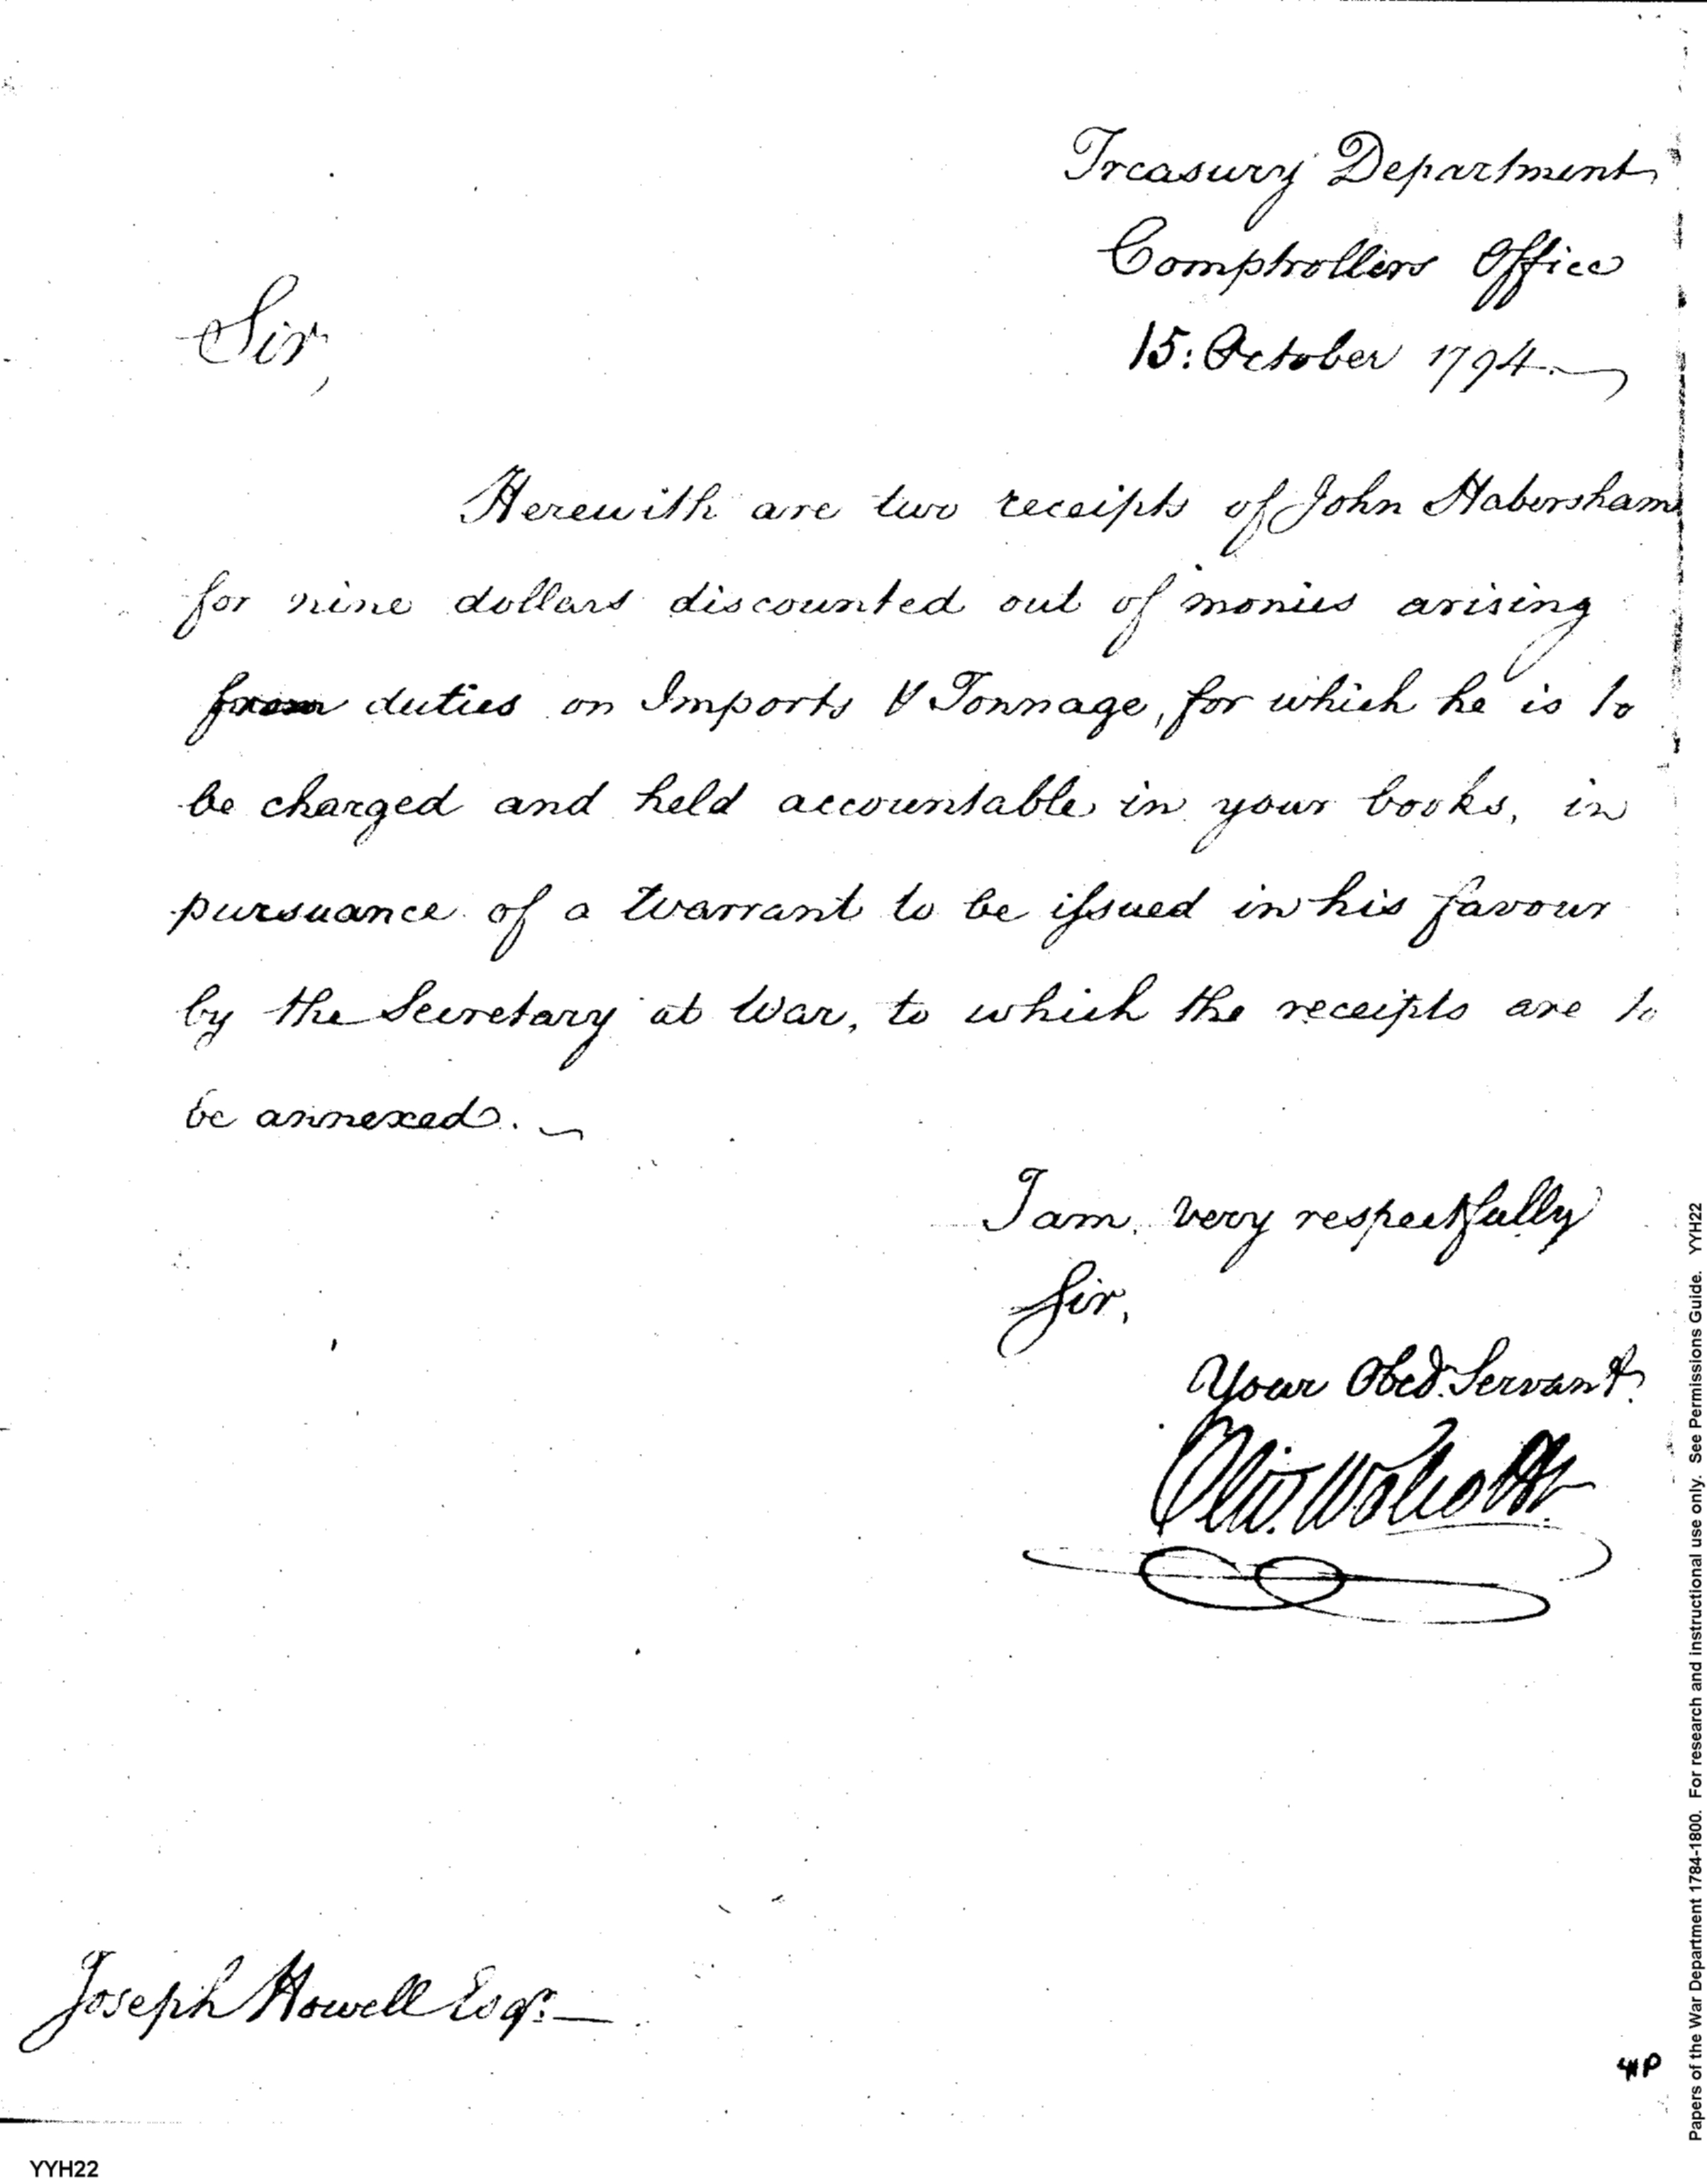 Treasury Department
Comptrollers Office
15: October 1794.
Sir,
Herewith are two receipts of John Habersham
for nine dollars discounted out of monies arising
from duties on Imports & Tonnage, for which he is to
be charged and held accountable in your books, in
pursuance of a Warrant to be issued in his favour
by the Secretary at War, to which the receipts are to
be annexed.
I am, very respectfully
Sir,
Your Obed. Servant.
Oliv. Wolcott Jr.
Joseph Howell Esqr.
YYH22
Papers of the War Department 1784-1800. For research and instructional use only. See Permissions Guide. YYH22